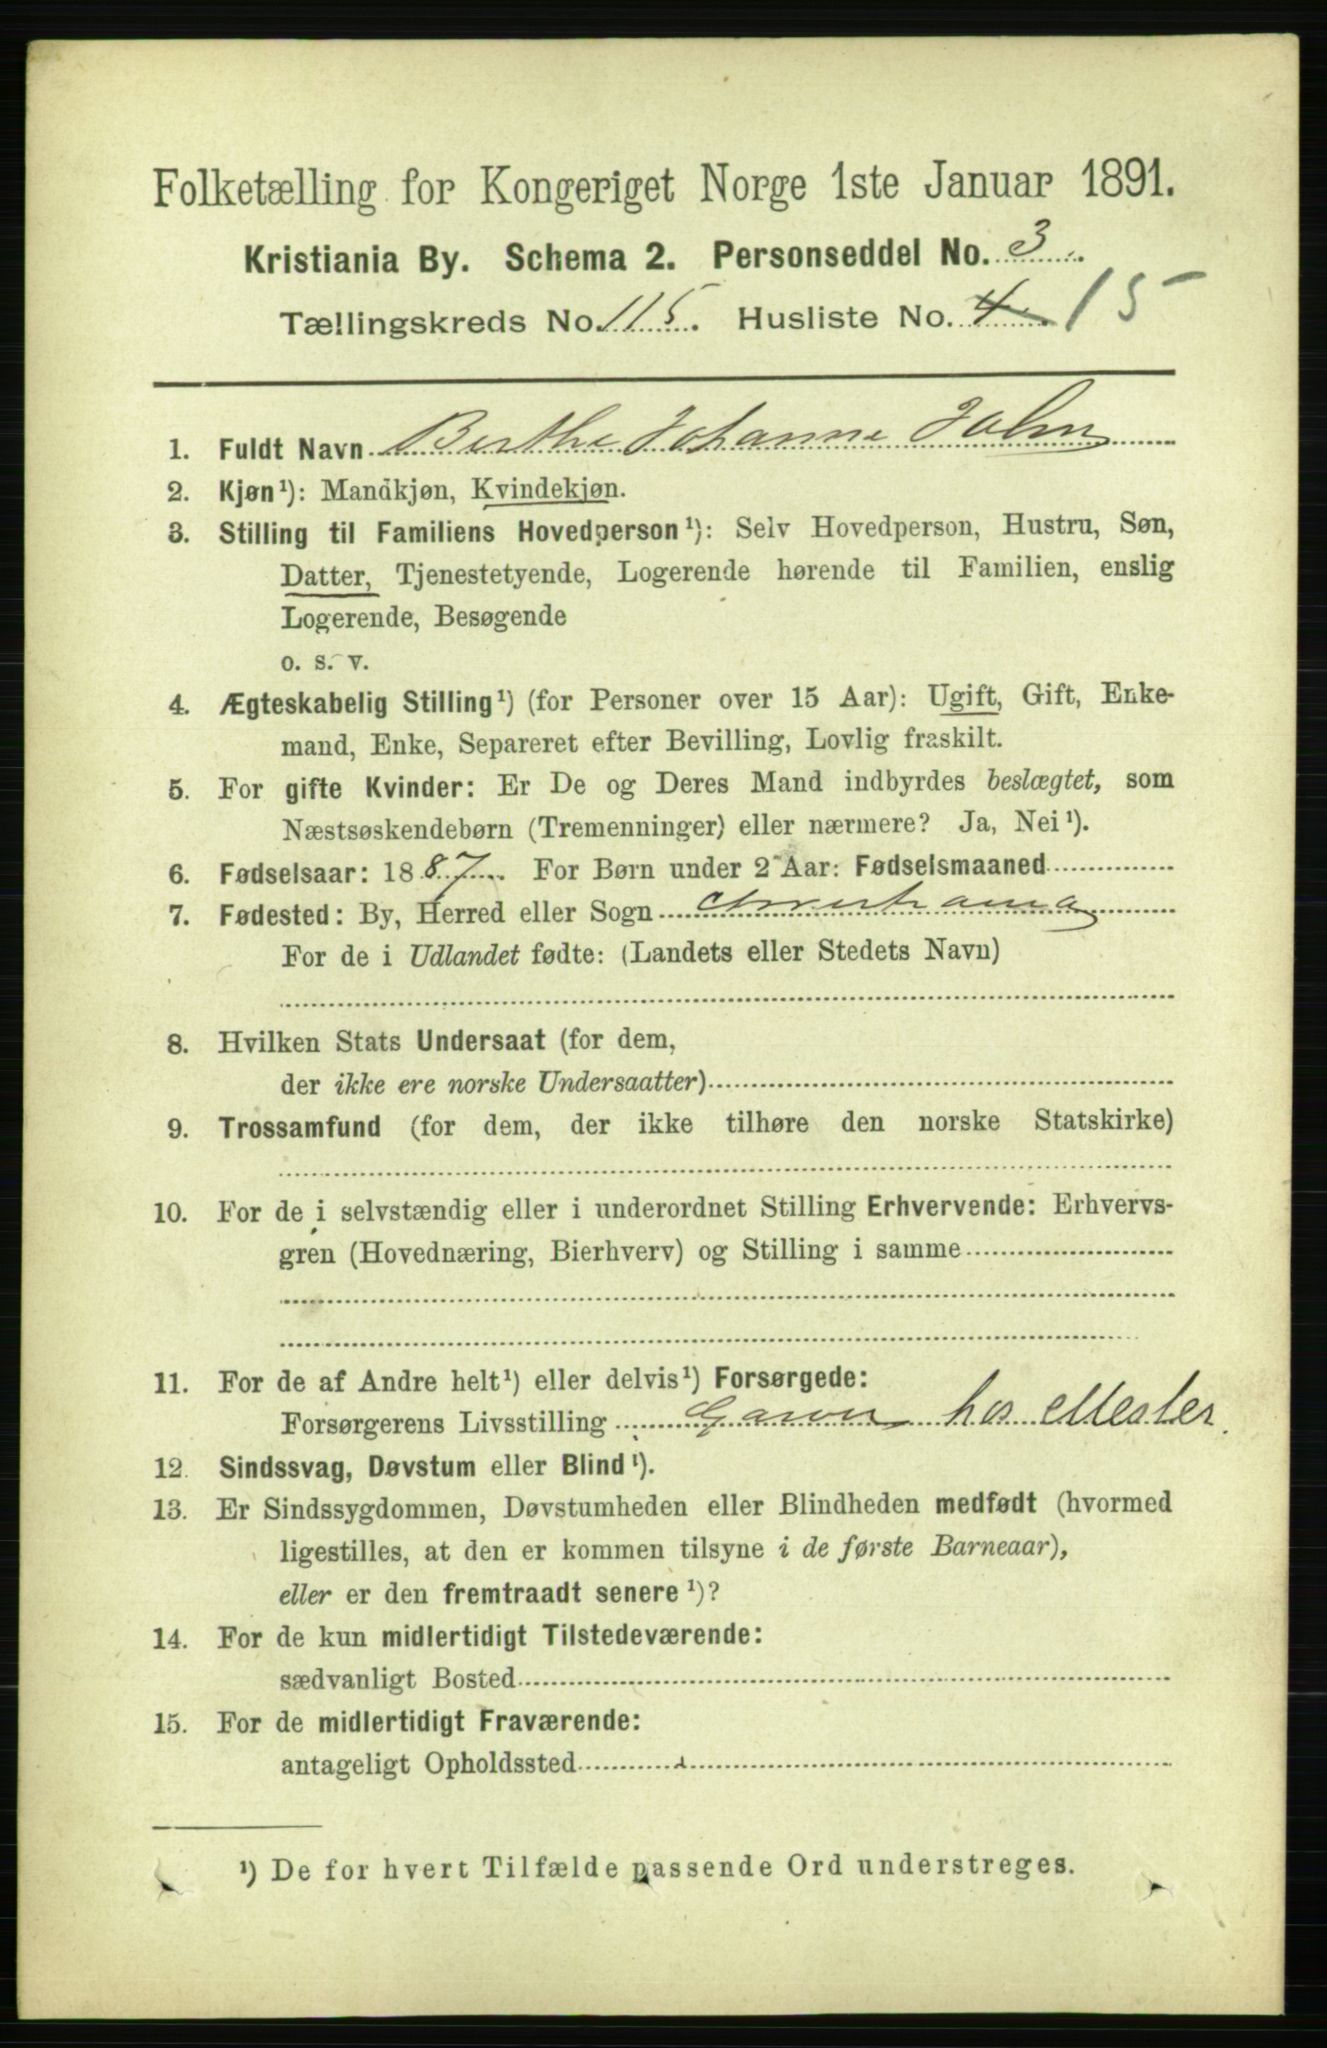 Folketælling for Kongeriget Norge 1ste Januar 1891.
Kristiania By. Schema 2. Personseddel No. 3
Tællingskreds No. 115. Husliste No. 4 15
1. Fuldt Navn Berthe Johanne
2. Kjøn¹): Mandkjøn, Kvindekjøn.
3. Stilling til Familiens Hovedperson¹): Selv Hovedperson, Hustru, Søn,
Datter, Tjenestetyende, Logerende hørende til Familien, enslig
Logerende, Besøgende
o. s. v.
4. Ægteskabelig Stilling¹) (for Personer over 15 Aar): Ugift, Gift, Enke-
mand, Enke, Separeret efter Bevilling, Lovlig fraskilt.
5. For gifte Kvinder: Er De og Deres Mand indbyrdes beslægtet, som
Næstsøskendebørn (Tremenninger) eller nærmere? Ja, Nei¹).
6. Fødselsaar: 1887. For Børn under 2 Aar: Fødselsmaaned
7. Fødested: By, Herred eller Sogn Christiania
For de i Udlandet fødte: (Landets eller Stedets Navn)
8. Hvilken Stats Undersaat (for dem,
der ikke ere norske Undersaatter)
9. Trossamfund (for dem, der ikke tilhøre den norske Statskirke)
10. For de i selvstændig eller i underordnet Stilling Erhvervende: Erhvervs-
gren (Hovednæring, Bierhverv) og Stilling i samme
11. For de af Andre helt¹) eller delvis¹) Forsørgede:
Forsørgerens Livsstilling Garver hos Mester.
12. Sindssvag, Døvstum eller Blind¹).
13. Er Sindssygdommen, Døvstumheden eller Blindheden medfødt (hvormed
ligestilles, at den er kommen tilsyne i de første Barneaar),
eller er den fremtraadt senere¹)?
14. For de kun midlertidigt Tilstedeværende:
sædvanligt Bosted
15. For de midlertidigt Fraværende:
antageligt Opholdssted
¹) De for hvert Tilfælde passende Ord understreges.